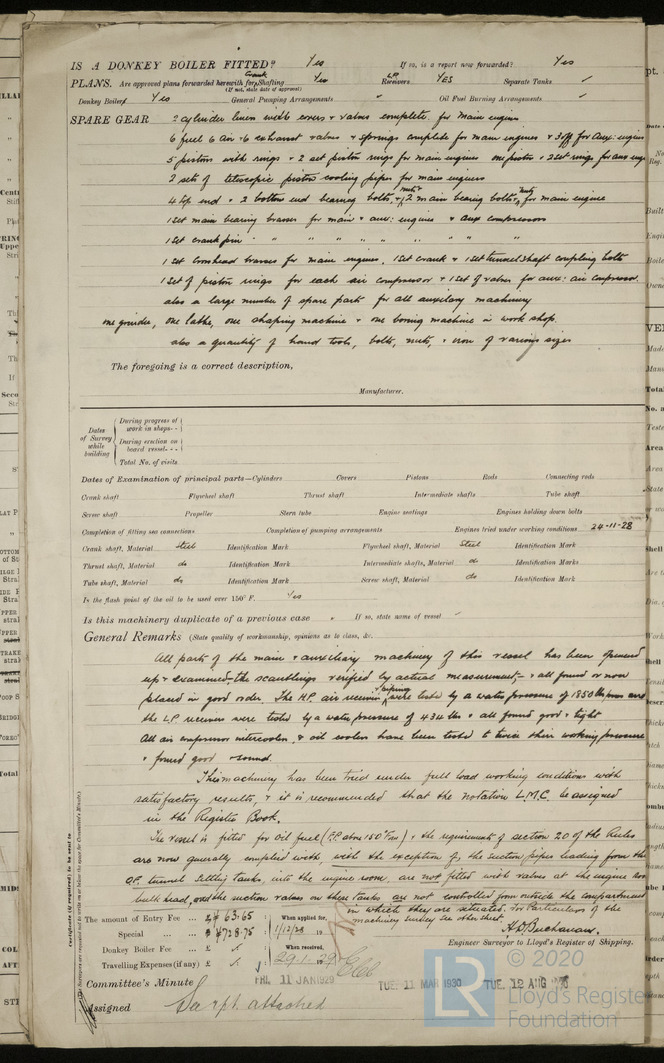 IS A DONKEY BOILER FITTED? Yes If so, is a report now forwarded? Yes
PLANS. Are approved plans forwarded herewith for Crank Shafting Yes L.P. Receivers YES Separate Tanks ✓
(If not, state date of approval)
Donkey Boilers Yes General Pumping Arrangements " Oil Fuel Burning Arrangements ✓
SPARE GEAR 2 cylinder liners with covers & valves complete for main engines
6 fuel 6 air & 6 exhaust valves & springs complete for main engines & 3 off for aux: engines
5 pistons with rings & 2 set piston rings for main engines one piston & 2 set rings for aux eng
2 sets of telescopic piston cooling pipes for main engines
4 top end & 2 bottom end bearing bolts, nuts & 2 main bearing bolts & nuts for main engine
1 set main bearing brasses for main & aux: engines & aux compressors
1 set crank pin " " " " " " " "
1 set crosshead brasses for main engines, 1 set crank & 1 set tunnel shaft coupling bolts
1 set of piston rings for each air compressor & 1 set of valves for aux: air compressor.
also a large number of spare parts for all auxiliary machinery
one grinder, one lathe, one shaping machine & one boring machine in work shop.
also a quantity of hand tools, bolts, nuts, & iron of various sizes
The foregoing is a correct description,
Manufacturer.
Dates of Survey while building
During progress of work in shops - -
During erection on board vessel - - -
Total No. of visits
Dates of Examination of principal parts—Cylinders Covers Pistons Rods Connecting rods
Crank shaft Flywheel shaft Thrust shaft Intermediate shafts Tube shaft
Screw shaft Propeller Stern tube Engine seatings Engines holding down bolts
Completion of fitting sea connections Completion of pumping arrangements Engines tried under working conditions 24-11-28
Crank shaft, Material steel Identification Mark Flywheel shaft, Material steel Identification Mark
Thrust shaft, Material do Identification Mark Intermediate shafts, Material do Identification Marks
Tube shaft, Material do Identification Mark Screw shaft, Material do Identification Mark
Is the flash point of the oil to be used over 150° F. Yes
Is this machinery duplicate of a previous case If so, state name of vessel
General Remarks (State quality of workmanship, opinions as to class, &c.
All parts of the main & auxiliary machinery of this vessel has been opened
up & examined - the scantlings verified by actual measurement, - & all found or now
placed in good order. The H.P. air receivers & piping were tested by a water pressure of 1850 lbs and
the L.P. receivers were tested by a water pressure of 434 lbs & all found good & tight
All air compressor intercoolers, & oil coolers have been tested to twice their working pressure
& found good & sound.
This machinery has been tried under full load working conditions with
satisfactory results, & it is recomended that the notation L.M.C. be assigned
in the Register Book.
The vessel is fitted for oil fuel (F.P. above 150° Fah) & the requirements of section 20 of the Rules
are now generally complied with, with the exception of, the suction pipes leading from the
O.F. tunnel settling tanks, into the engine room, are not fitted with valves at the engine room
bulk head, and the suction valves on these tanks are not controlled from outside the compartment
in which they are situated. For particulars of the
machinery survey see other sheet.
The amount of Entry Fee ... £ 63.65 When applied for,
Special ... £ 4728.75 1/12/28 19
Donkey Boiler Fee ... £ When received,
Travelling Expenses (if any) £ 29.1.29
H.D. Buchanan.
Engineer Surveyor to Lloyd's Register of Shipping.
Committee's Minute FRI. 11 JAN 1929 TUE. 11 MAR 1930 TUE. 12 AUG
Assigned See rpt. attached
Certificate (if required) to be sent to
(The Surveyors are requested not to write on or below the space for Committee's Minute.)
© 2020
Lloyd's Register
Foundation
LR